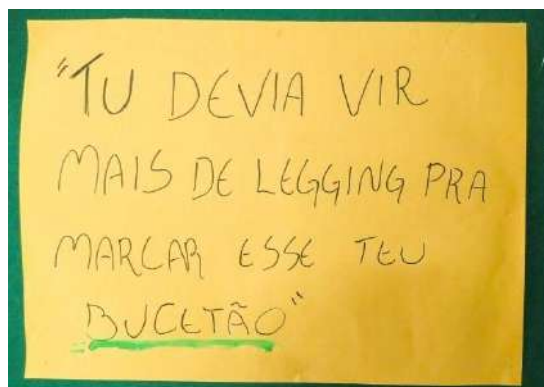 "TU DEVIA VIR
MAIS DE LEGGING PRA
MARCAR ESSE TEU
BUCETÃO"